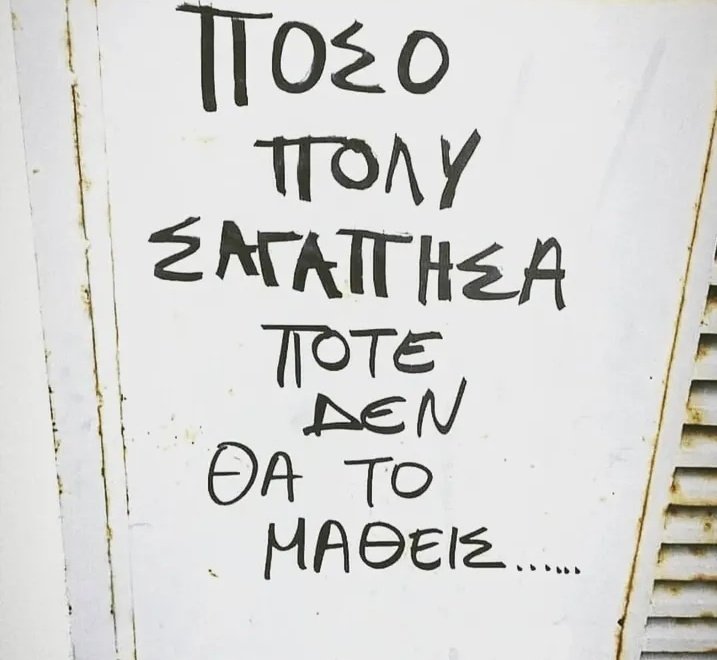 ΠΟΣΟ
ΠΟΛΥ
ΣΑΓΑΠΗΣΑ
ΠΟΤΕ
ΔΕΝ
ΘΑ ΤΟ
ΜΑΘΕΙΣ......